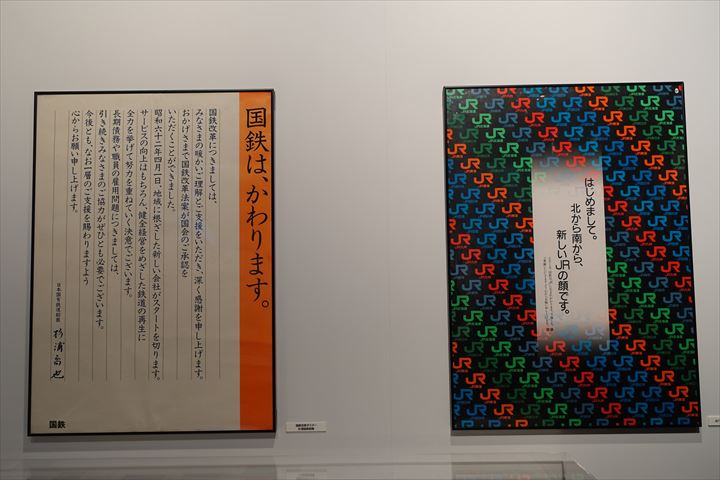 国鉄は、かわります。
国鉄改革につきましては、
みなさまの暖かいご理解とご支援をいただき、深く感謝を申し上げます。
おかげさまで国鉄改革法案が国会のご承認を
いただくことができました。
昭和六十二年四月一日、地域に根ざした新しい会社がスタートを切ります。
サービスの向上はもちろん、健全経営をめざした鉄道の再生に
全力を挙げて努力を重ねていく決意でございます。
長期債務や職員の雇用問題につきましては、
引き続きみなさまのご協力がぜひとも必要でございます。
今後とも、なお一層のご支援を賜わりますよう
心からお願い申し上げます。
日本国有鉄道総裁
杉浦喬也
国鉄
はじめまして。
北から南から、
新しいJRの顔です。
JR